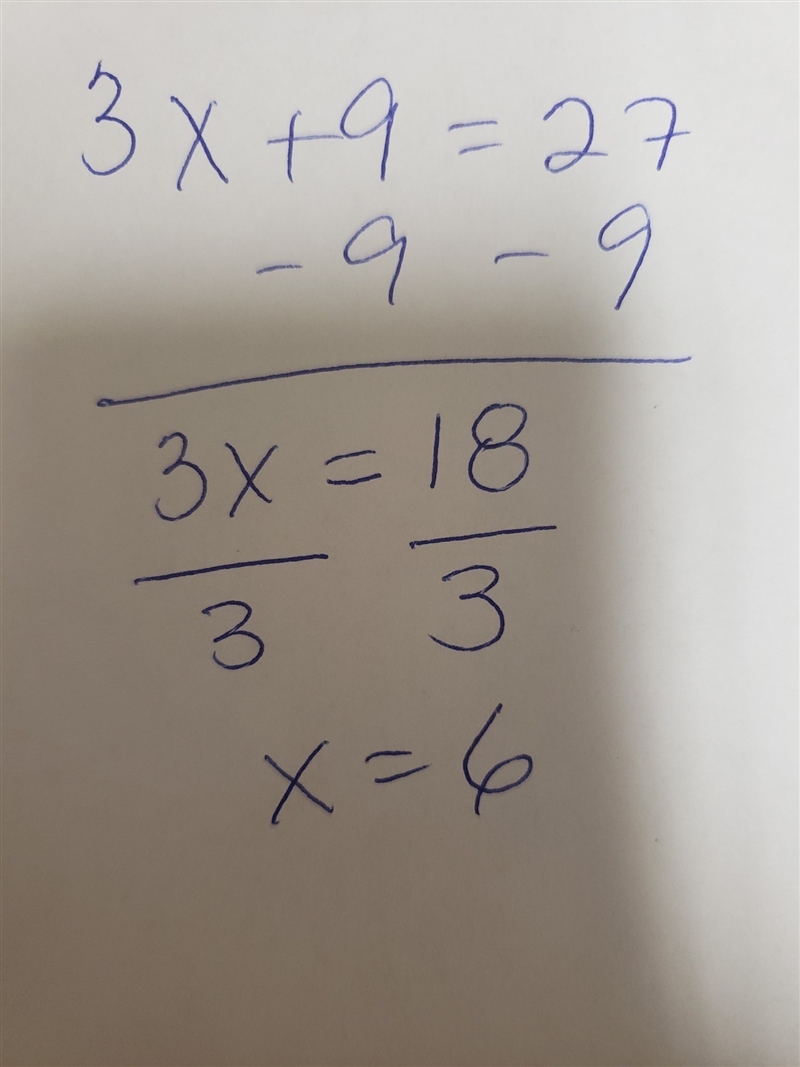 3x + 9 = 27
- 9 - 9
3x = 18
3 3
x = 6